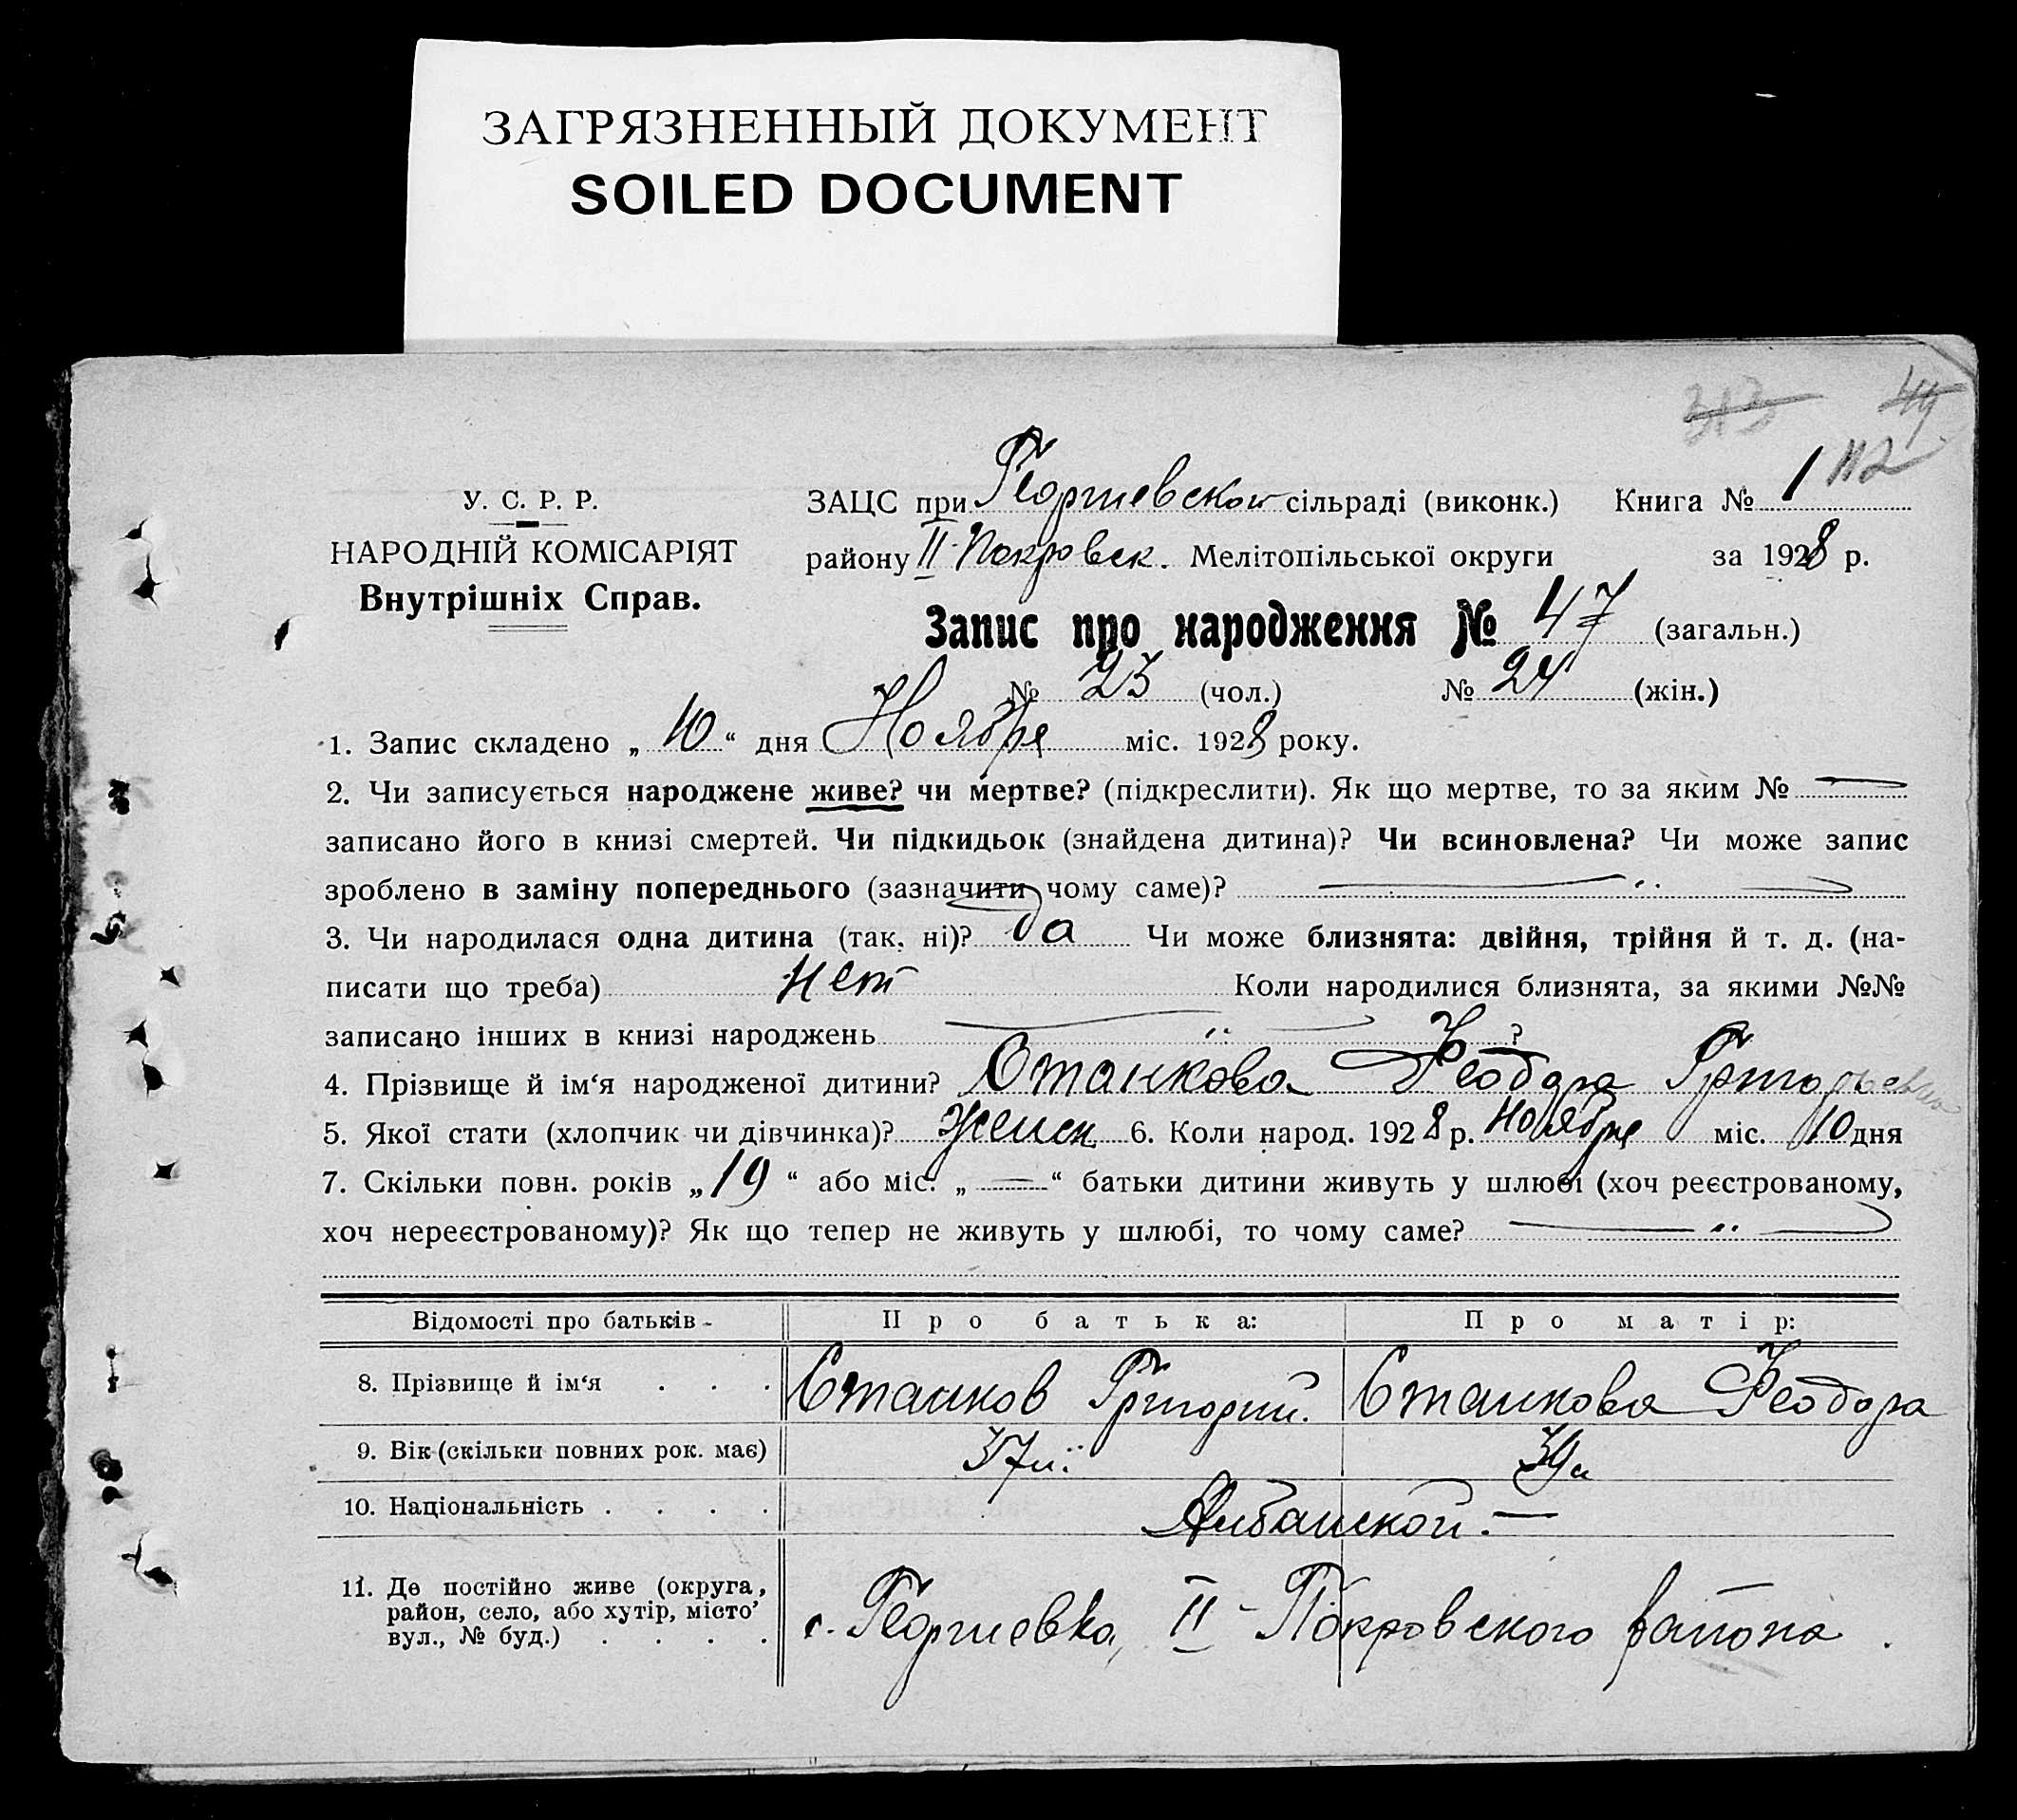 ЗАГРЯЗНЕННЫЙ ДОКУМЕНТ
SOILED DOCUMENT
313 44
112
У. С. Р. Р.
НАРОДНІЙ КОМІСАРІЯТ
Внутрішніх Справ.
ЗАЦС при Георгиевской сільраді (виконк.) Книга № 1
району II-Покровск. Мелітопільської округи за 1928 р.
Запис про народження № 47 (загальн.)
№ 23 (чол.) № 24 (жін.)
1. Запис складено „ 10 “ дня Ноября міс. 1928 року.
2. Чи записується народжене живе? чи мертве? (підкреслити). Як що мертве, то за яким №
записано його в книзі смертей. Чи підкидьок (знайдена дитина)? Чи всиновлена? Чи може запис
зроблено в заміну попереднього (зазначити чому саме)?
3. Чи народилася одна дитина (так, ні)? да Чи може близнята: двійня, трійня й т. д. (на-
писати що треба) нет Коли народилися близнята, за якими №№
записано інших в книзі народжень ?
4. Прізвище й ім‘я народженої дитини? Станкова Феодора Григорьевна
5. Якої стати (хлопчик чи дівчинка)? Женск 6. Коли народ. 1928 р. Ноября міс. 10 дня
7. Скільки повн. років „ 19 “ або міс. „ — “ батьки дитини живуть у шлюбі (хоч реєстрованому,
хоч нереєстрованому)? Як що тепер не живуть у шлюбі, то чому саме?
Відомості про батьків - Про батька: Про матір:
8. Прізвище й ім‘я . . . Станков Григорий. Станкова Феодора
9. Вік (скільки повних рок. має) 37 39
10. Національність . . . . Албанской. —
11. Де постійно живе (округа,
район, село, або хутір, місто’
вул., № буд.) . . . .
с. Георгиевка, II-Покровского района.